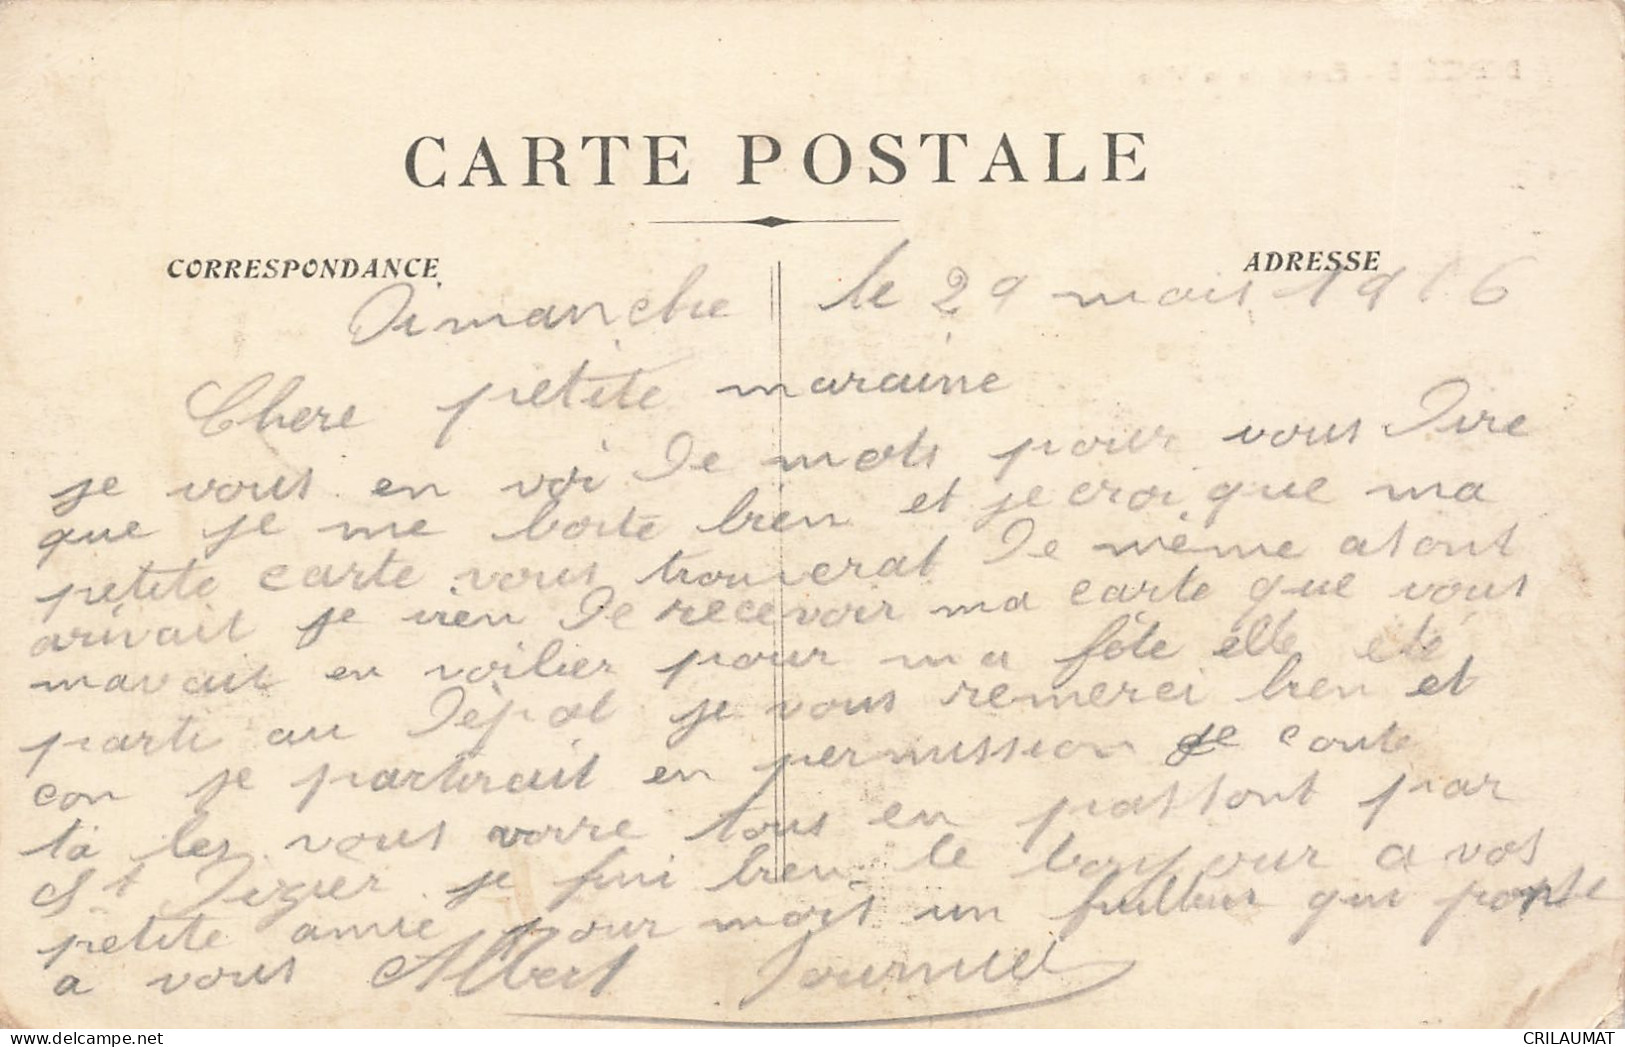 CARTE POSTALE
CORRESPONDANCE
ADRESSE
Dimanche le 29 mais 1916
Chere petite maraine
je vous en voi De mots pour vous Dire
que je me borte bien et je croi que ma
petite carte vous trouverat De même a tout
arivait je vien De recevoir ma carte que vous
mavait en voilier pour ma fête elle eté
parti au Dépot je vous remerci bien et
con je partirait en permission je conte
ta les vous voire tous en passont par
St Dezier je fini bien le bonjour a vos
petite amie pour mois un fuilleur qui ponse
a vous Albert
CRILAUMAT